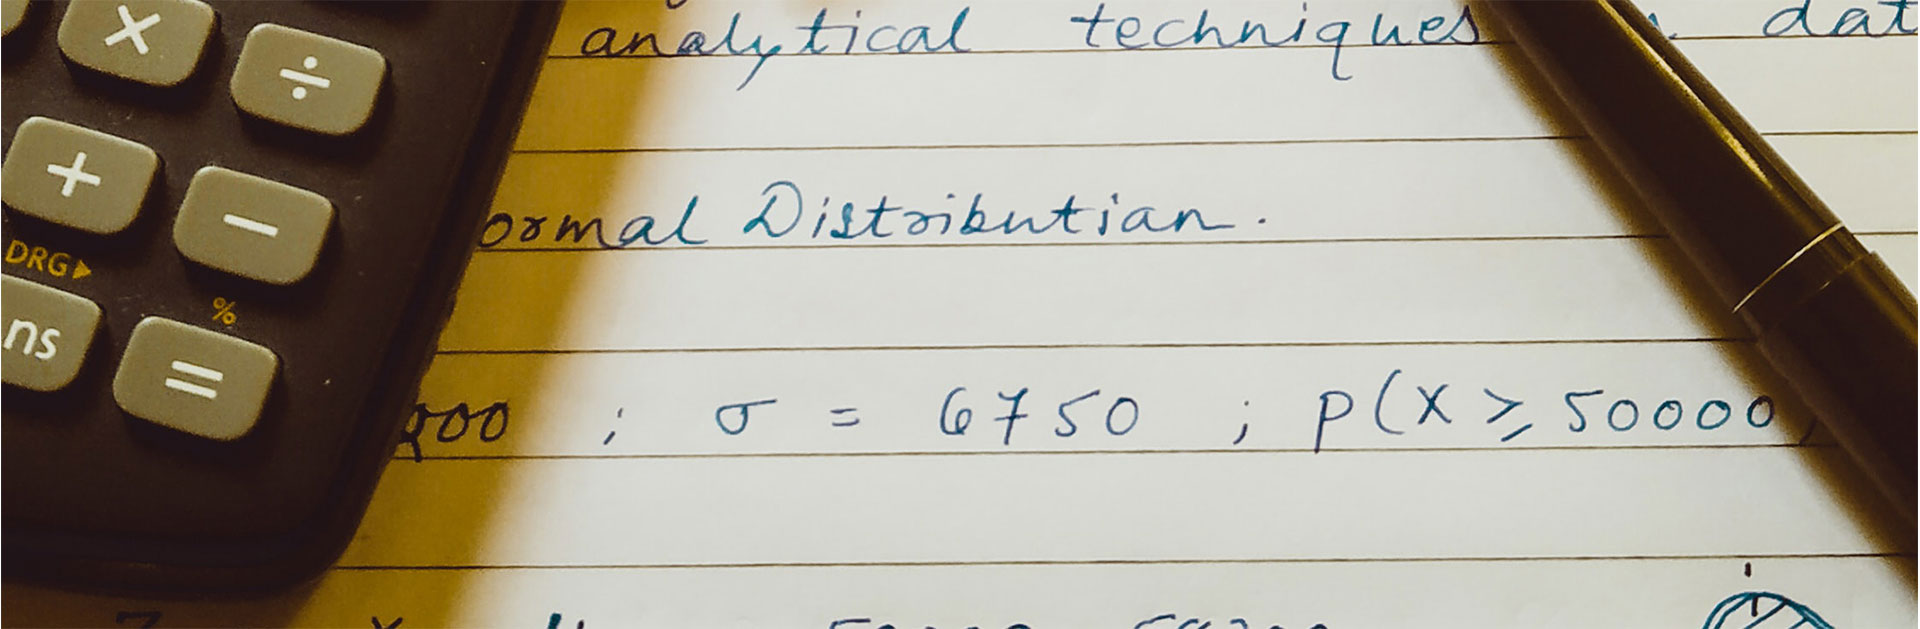 × ÷
+ −
DRG▶ %
ns =
analytical techniques dat
ormal Distribution.
; σ = 6750 ; P(X ≥ 50000)